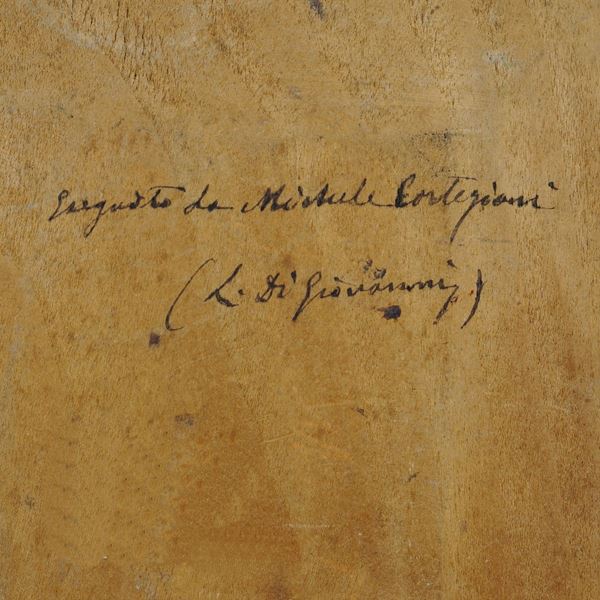 Eseguito da Michele Cortegiani
(L. Di Giovanni)